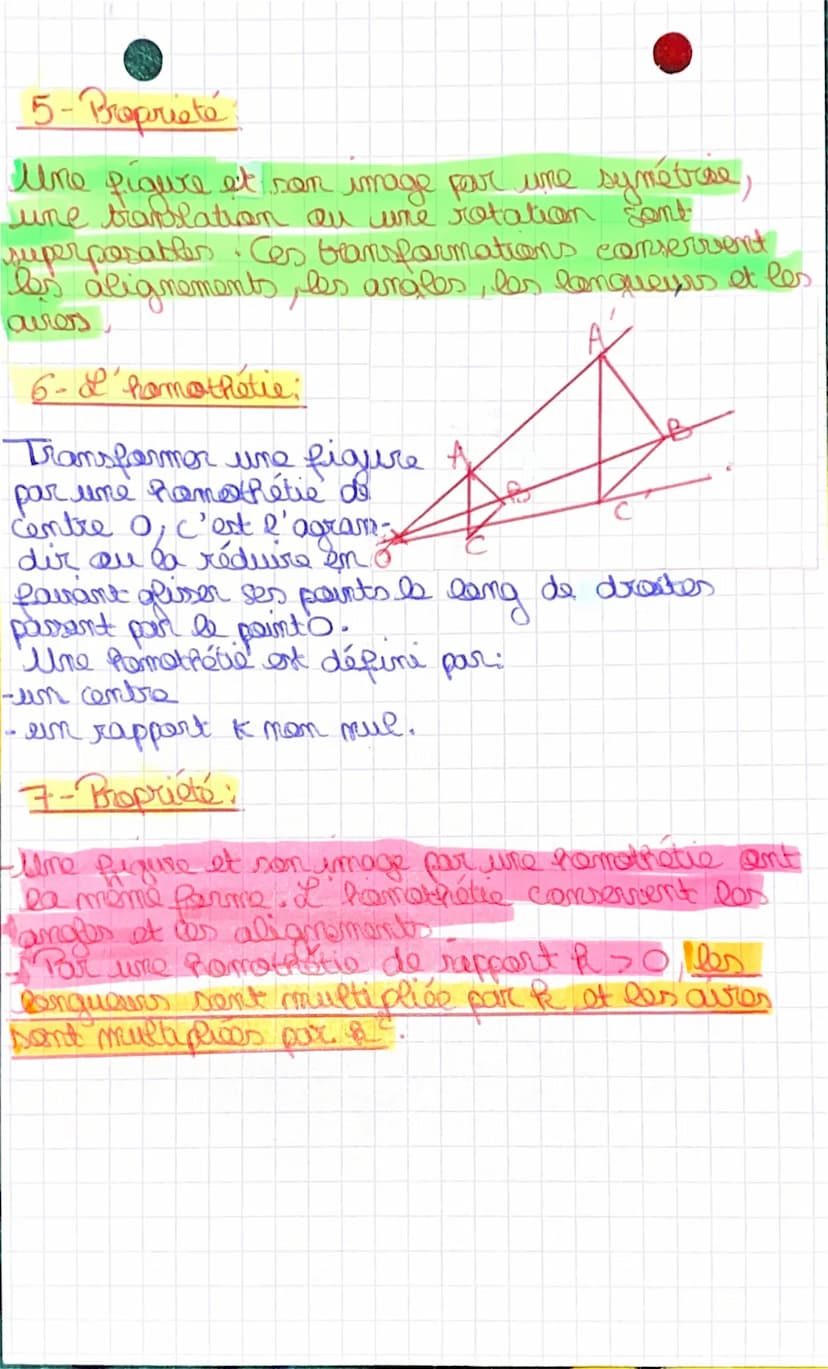 5- Propriété:
Une figure et son image par une symétrie,
une translation ou une rotation sont
superposables. Ces transformations conservent
les alignements, les angles, les longueurs et les
aires.
6- L'homothétie:
Transformer une figure
par une homothétie de
centre O, c'est l'agran-
dir ou la réduire en
faisant glisser ses points le long de droites
passant par le point O.
A'
B
C'
A
B
C
O
Une homothétie est défini par:
-un centre
- un rapport K non nul.
7- Propriété:
-Une figure et son image par une homothétie ont
la même forme. L'homothétie conservent les
angles et les alignements
- Par une homothétie de rapport k > 0, les
longueurs sont multipliée par k et les aires
sont multipliées par k².